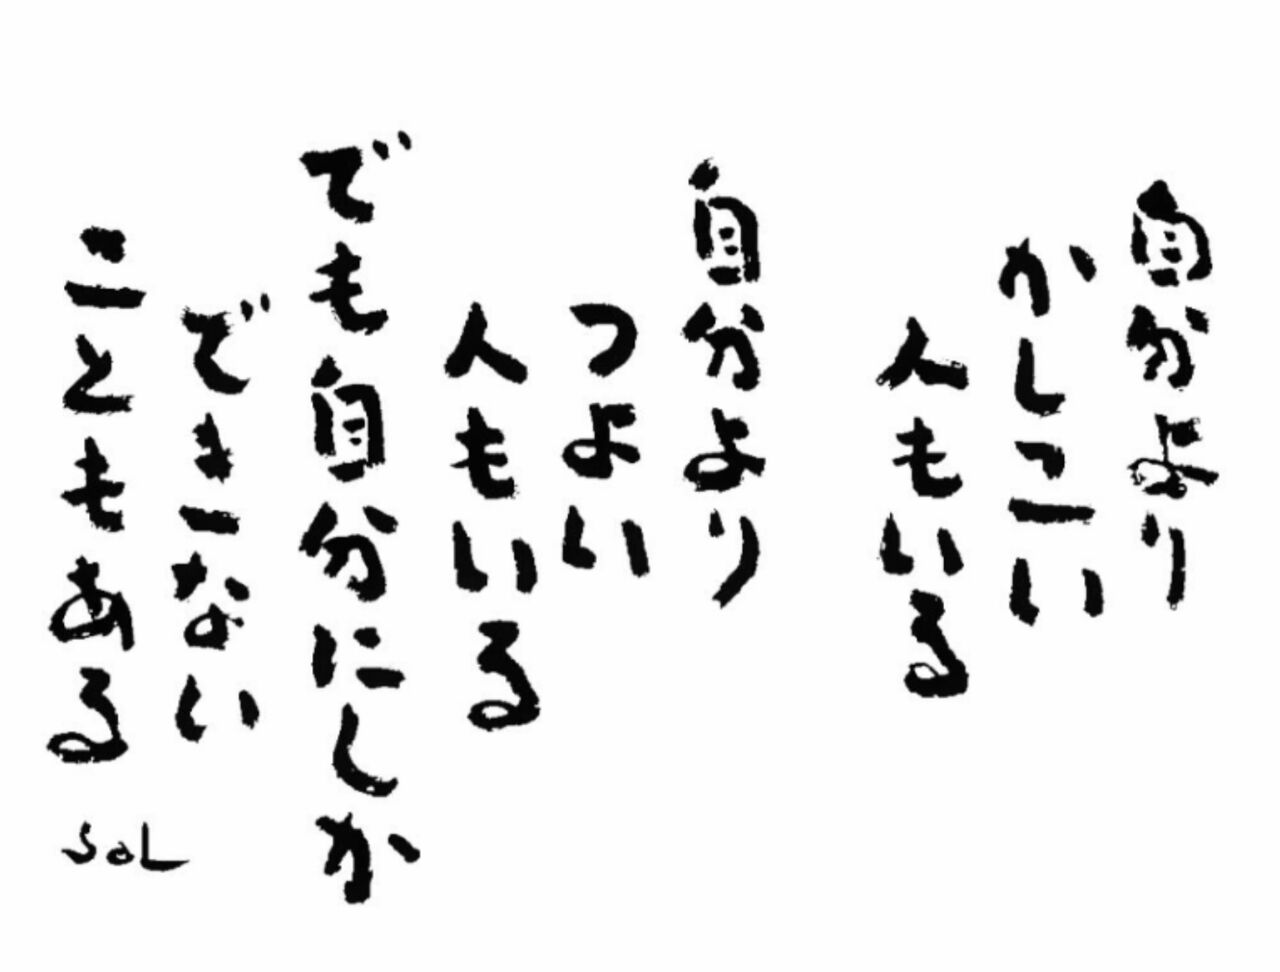 自分より
かしこい
人もいる
自分より
つよい
人もいる
でも自分にしか
できない
こともある
SOL